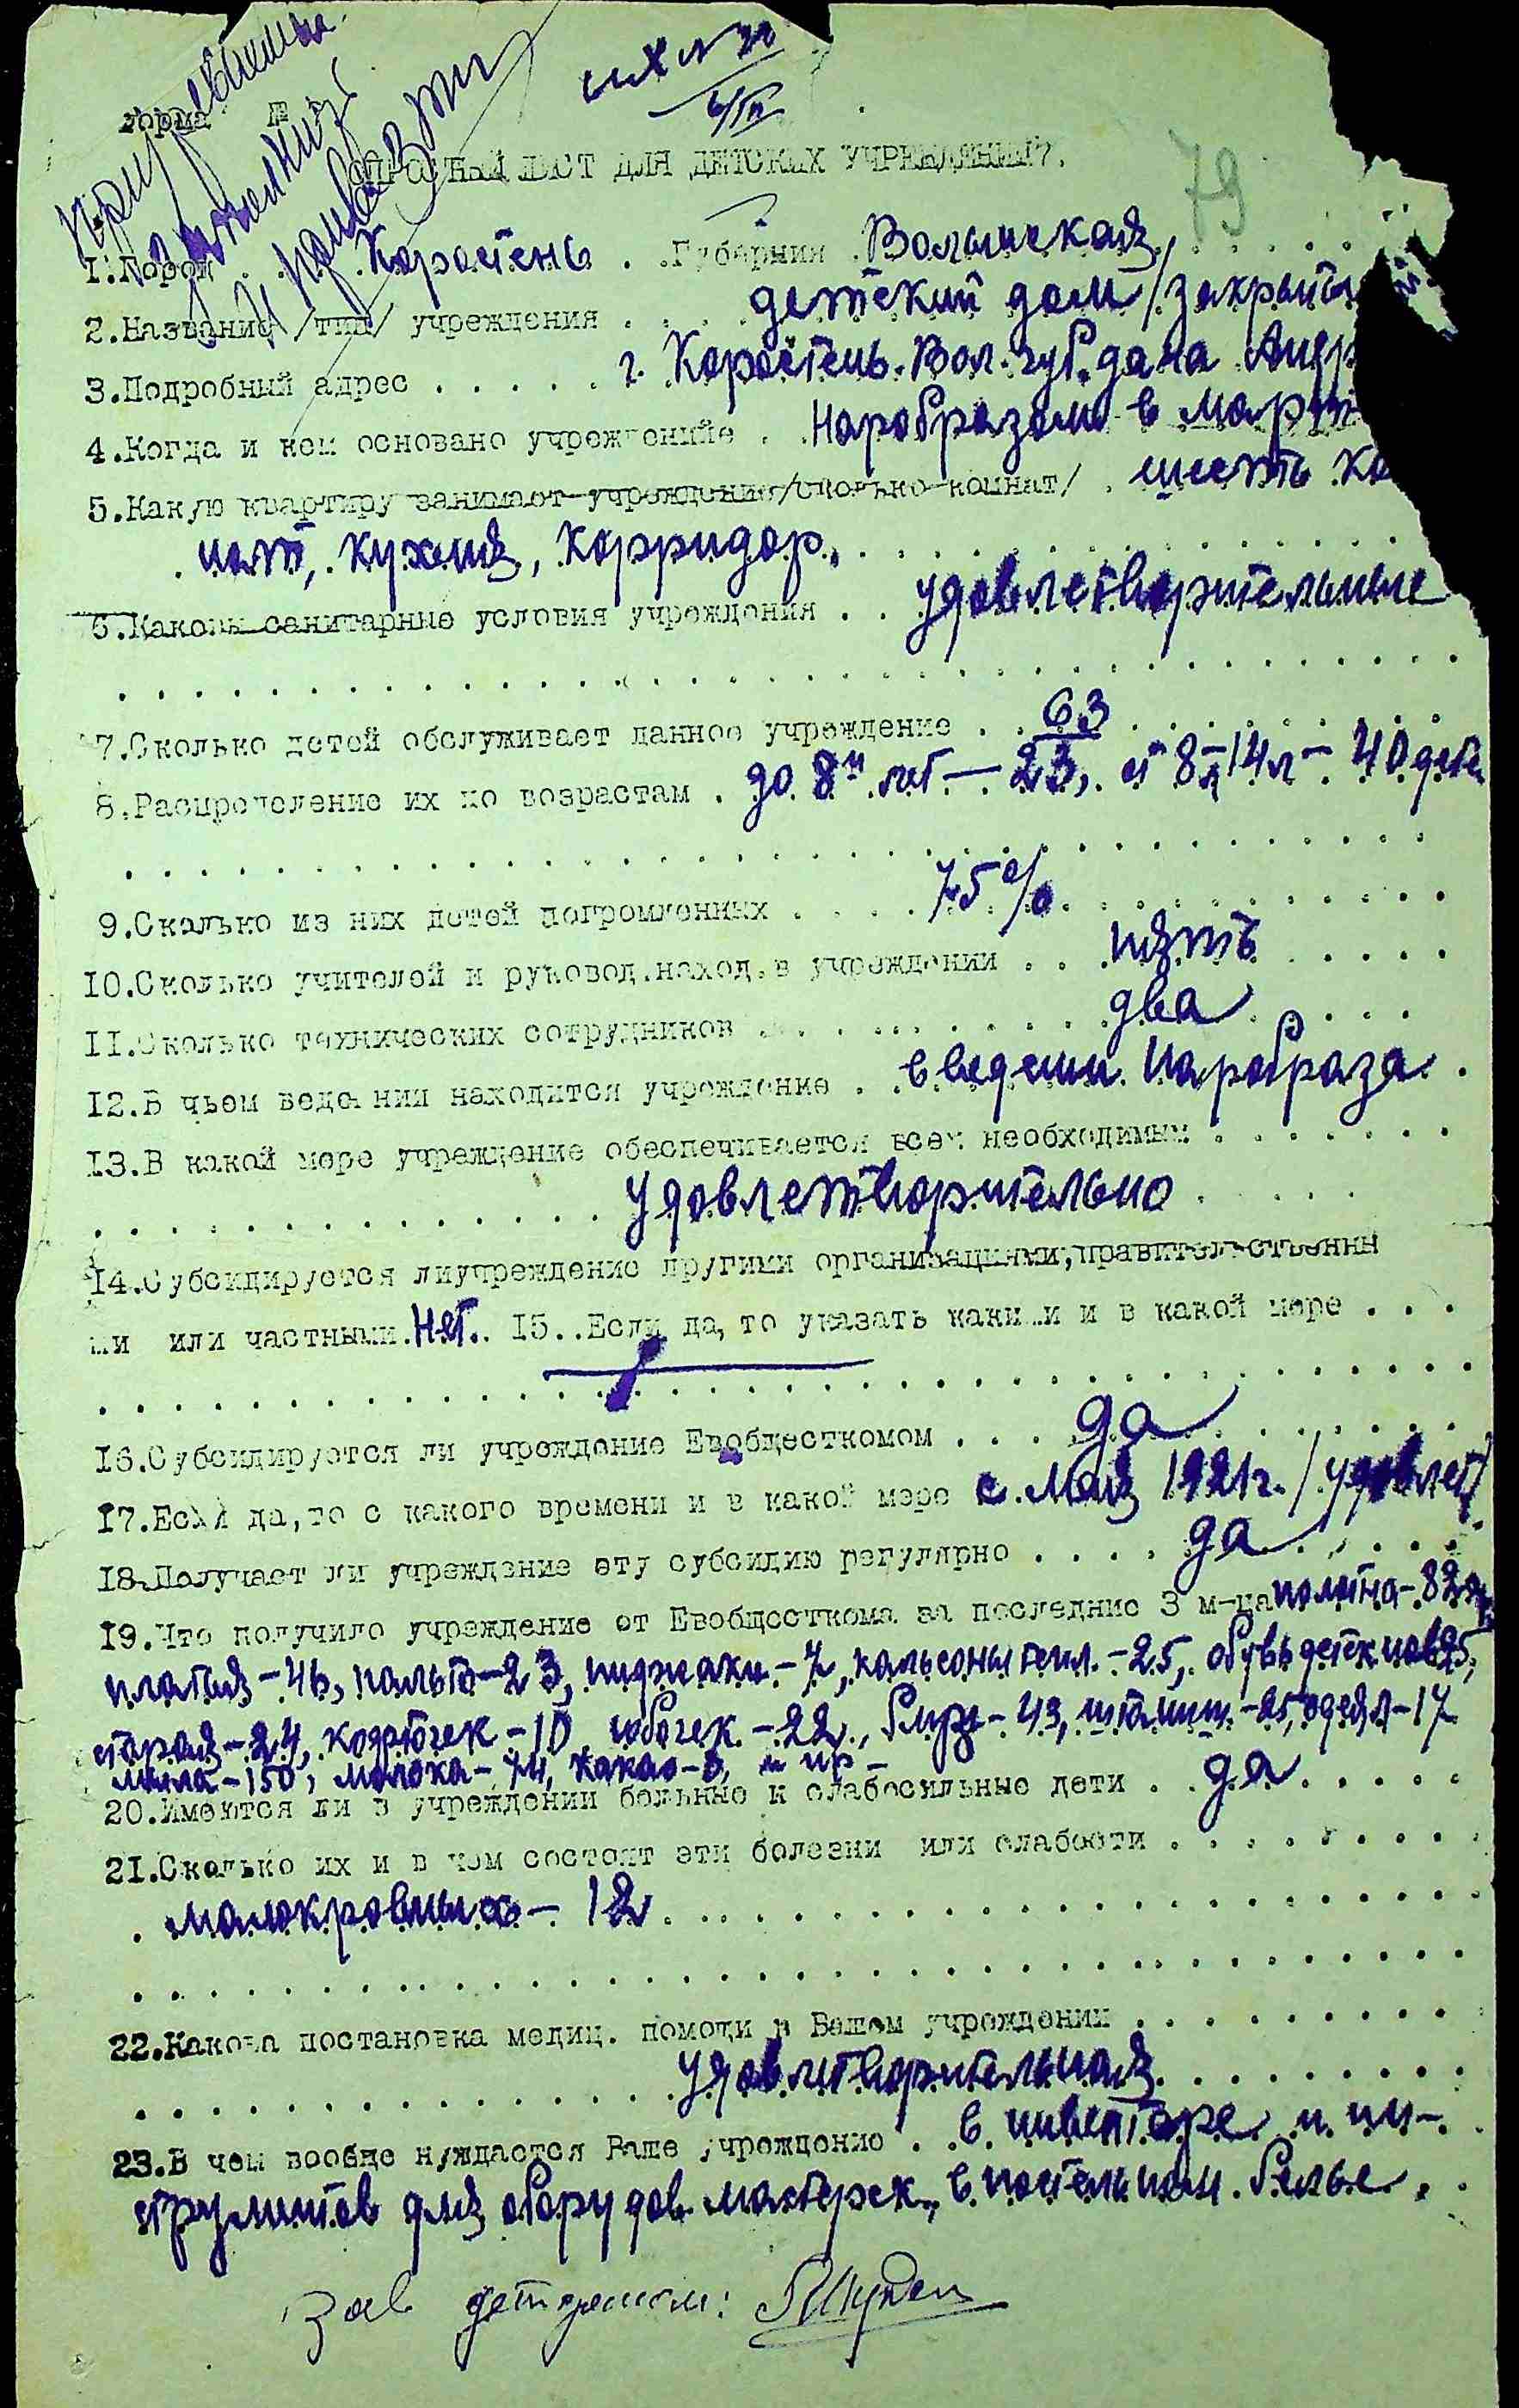 исх №
6/III
79
Форма
ОПРОСНЫЙ ЛИСТ ДЛЯ ДЕТСКИХ УЧРЕЖДЕНИЙ.
1.Город . . Коростень . Губерния Волынская
2.Название /тип/ учреждения . . . детский дом /закрыты
3.Подробный адрес . . . . . г. Коростень. Вол. губ. дача Андр
4.Когда и кем основано учреждение . . Наробразом в март
5.Какую квартиру занимает учреждение/сколько комнат/ . шесть ко
нат, кухня, корридор.
6.Каковы санитарные условия учреждения . . удовлетворительные
7.Сколько детей обслуживает данное учреждение . . 63
8.Распределение их по возрастам . до 8и лет — 23, от 8 д 14 л — 40 дете
9.Сколько из них детей погромленных . . . . 75%
10.Сколько учителей и руковод.наход.в учреждении . . . пять
11.Сколько технических сотрудников . . . . . . . . два
12.В чьем ведении находится учреждение . . в ведении Наробраза
13.В какой мере учреждение обеспечивается всем необходимым . . . . . . .
удовлетворительно
14.Субсидируется лиучреждение другими организациями,правительственны
ми или частными.Нет.. 15..Если да,то указать какими и в какой мере . . .
16.Субсидируется ли учреждение Евобщесткомом . . . да
17.Если да,то с какого времени и в какой мере с Мая 1921г. /удовлет/
18.Получает ли учреждение эту субсидию регулярно . . . . да
19.Что получило учреждение от Евобщесткома за последние 3 м-ца полотна-82
платья - 46, пальто - 23, пиджаки - 7, кальсоны тепл. - 25, обувь детск нов 25,
старая - 24, кофточек - 10, юбочек - 22, блуз - 43, штаниш. - 25, одеял - 17
мыла - 150, молока - 74, какао - 3, и пр -
20.Имеются ли в учреждении больные и слабосильные дети . . да
21.Сколько их и в чем состоят эти болезни или слабости . . . . . . . . .
малокровных - 12
22.Какова постановка медиц. помощи в Вашем учреждении . . . . . . . . .
удовлетворительная
23.В чем вообще нуждается Ваше учреждение . . в инвентаре и ин-
струментов для оборудов мастерск., в постельном белье
Зав детдомом: